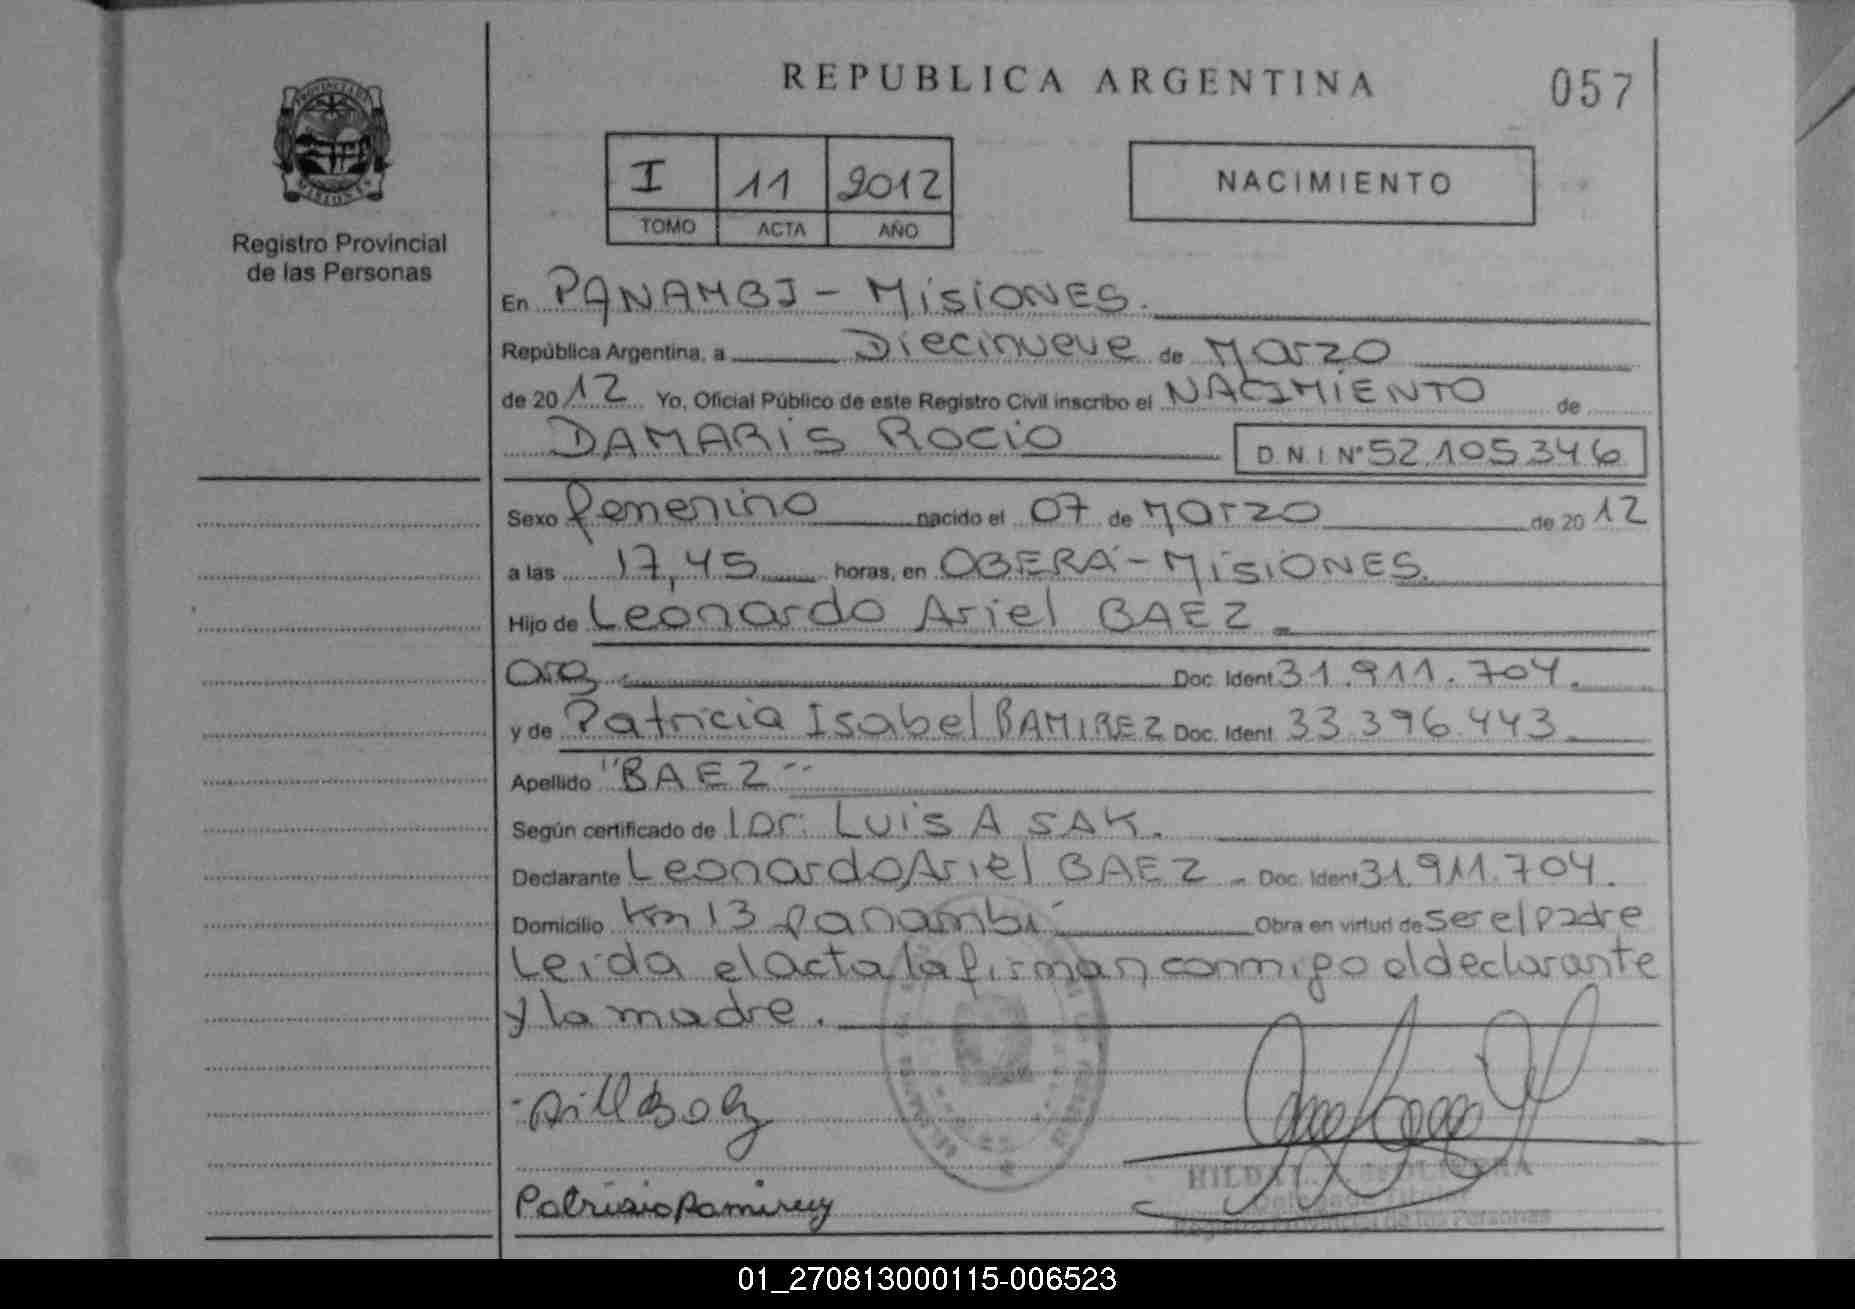 REPUBLICA ARGENTINA
057
I 11 2012
TOMO ACTA AÑO
NACIMIENTO
Registro Provincial
de las Personas
En PANAMBI - MISIONES.
República Argentina, a Diecinueve de MARZO
de 2012 Yo, Oficial Público de este Registro Civil inscribo el NACIMIENTO de
DAMARIS ROCIO D.N.I Nº 52.105.346
Sexo femenino nacido el 07 de MARZO de 2012
a las 17,45 horas, en OBERÁ - MISIONES.
Hijo de Leonardo Ariel BAEZ
arg Doc. Ident 31.911.704.
y de Patricia Isabel RAMIREZ Doc. Ident. 33.396.443
Apellido "BAEZ"
Según certificado de Dr. LUIS A SAK.
Declarante Leonardo Ariel BAEZ - Doc. Ident 31.911.704.
Domicilio Km 13 panambí Obra en virtud de ser el padre
Leida el acta la firman conmigo el declarante
y la madre.
Registro Provincial de las Personas
01_270813000115-006523